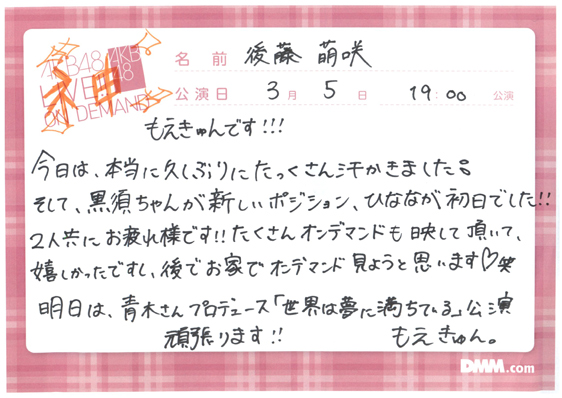 AKB48 AKB48
LIVE!!
ON DEMAND
神
名前 後藤 萌咲
公演日 3月 5日 19:00 公演
もえきゅんです!!!
今日は、本当に久しぶりにたっくさん汗かきました。
そして、黒須ちゃんが新しいポジション、ひななが初日でした!!
2人共にお疲れ様です!!たくさんオンデマンドも映して頂いて、
嬉しかったですし、後でお家でオンデマンド見ようと思います♡笑
明日は、青木さんプロデュース「世界は夢に満ちている」公演
頑張ります!! もえきゅん。
DMM.com